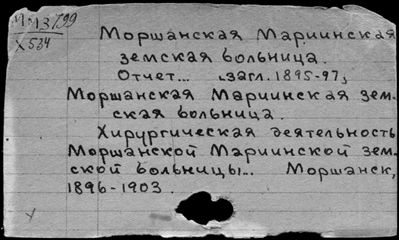 ММЗ 799
X534
Моршанская Мариинская
земская больница.
Отчет... [загл. 1895-97]
Моршанская Мариинская зем-
ская больница.
Хирургическая деятельность
Моршанской Мариинской зем-
ской больницы... Моршанск,
1896-1903.